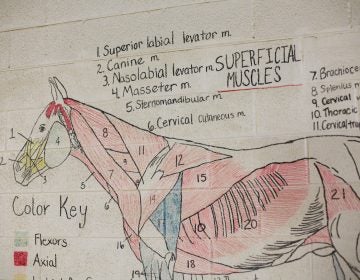 1. Superior labial levator m.
2. Canine m.
3. Nasolabial levator m.
4. Masseter m.
5. Sternomandibular m.
6. Cervical cutaneous m.
SUPERFICIAL
MUSCLES
7. Brachioce
8. Splenius m
9. Cervical
10. Thoracic
11. Cervical trap
1
2
3
4
5
6
7
8
9
11
12
14
15
16
18
19
20
21
Color Key
Flexors
Axial